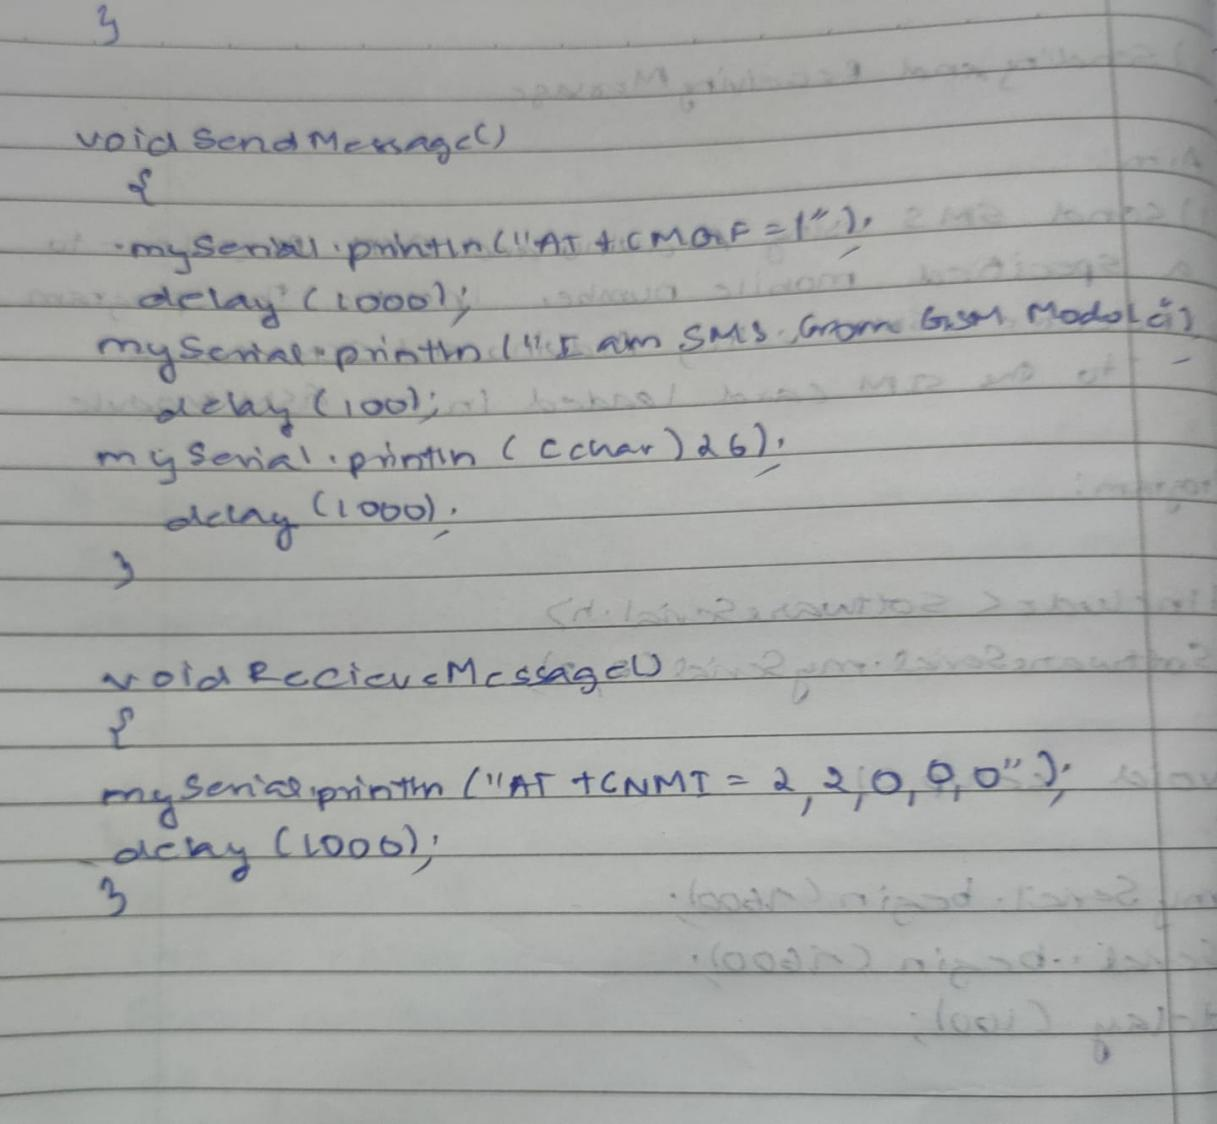 }
void SendMessage()
{
mySerial.println("AT+CMGF=1");
delay (1000);
mySerial.println ("I am SMS from GSM Modole");
delay (100);
mySerial.println ((char)26);
delay (1000);
}
void RecieveMessage()
{
mySerial.println ("AT +CNMI = 2,2,0,0,0");
delay (1000);
}